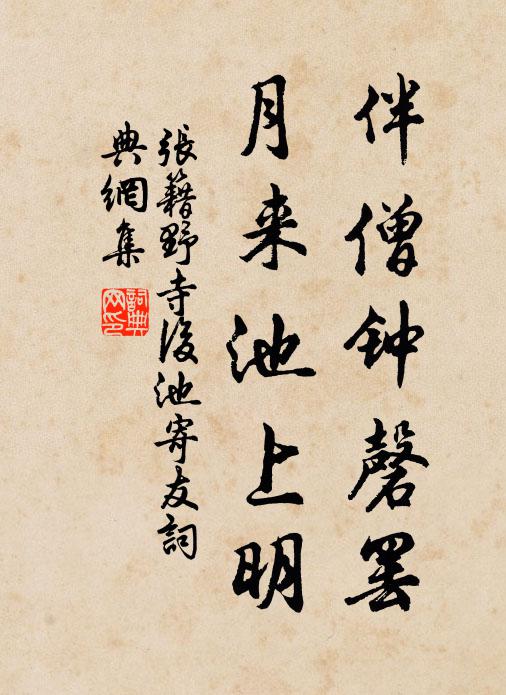 伴僧钟磬罢
月来池上明
張籍野寺後池寄友詞
典網集
詞典网印